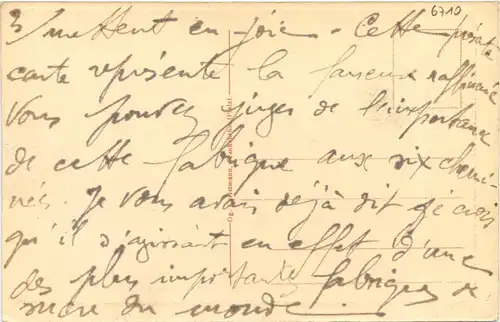 6710
3/ mettent en joie - Cette présente
carte représente la fameuse raffinerie
Vous pouvez juger de l'importance
de cette fabrique aux six chemi
nées je vous avais déjà dit je crois
qu'il s'agissait en effet d'une
des plus importantes fabriques de
sucre du monde.